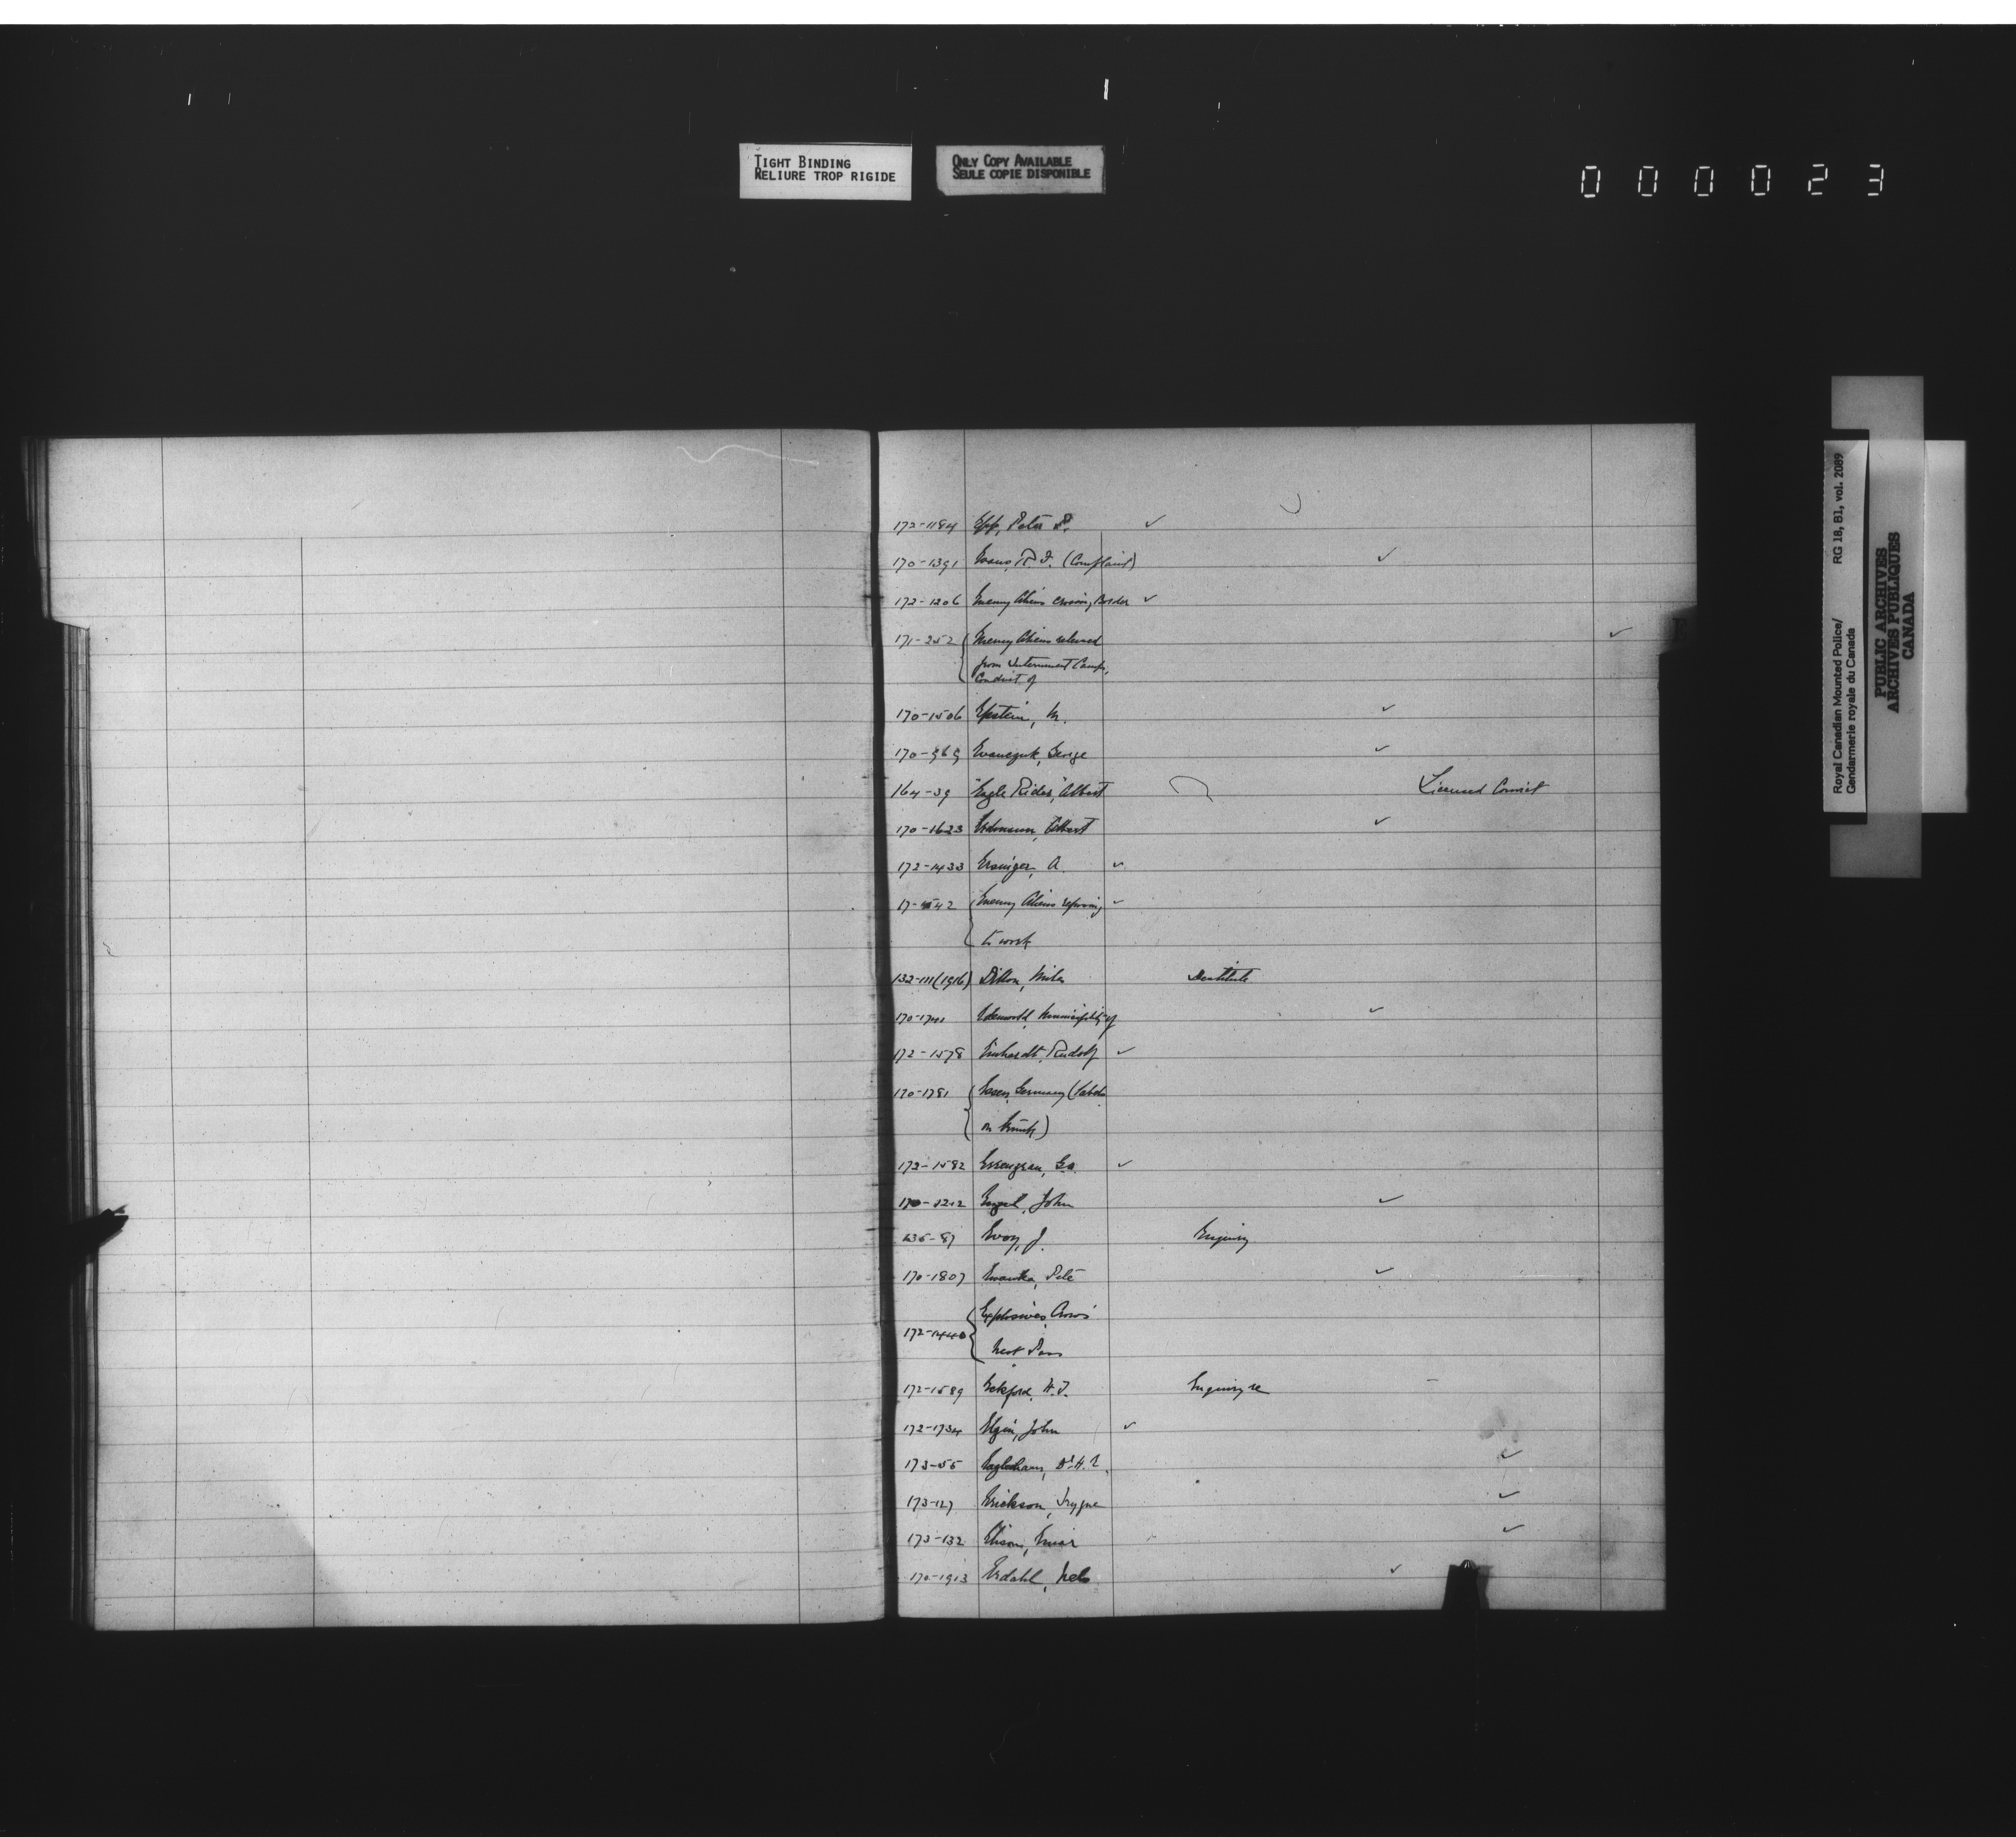 TIGHT BINDING
RELIURE TROP RIGIDE
ONLY COPY AVAILABLE
SEULE COPIE DISPONIBLE
000023
Royal Canadian Mounted Police/ RG 18, B1, vol. 2089
Gendarmerie royale du Canada
PUBLIC ARCHIVES
ARCHIVES PUBLIQUES
CANADA
172-1184 Epp, Peter P. ✓
170-1391 Evans, R. F. (Complaint) ✓
172-1206 Enemy Aliens crossing Border ✓
171-252 Enemy Aliens released ✓
from Internment Camps,
Conduct of
170-1506 Epstein, M. ✓
170-969 Ewanczuk, George ✓
164-39 "Eagle Rider", Albert Licensed Convict
170-1623 Erdmann, Albert ✓
172-1433 A. ✓
Enemy Aliens refusing ✓
to work
132-111 (1916) Destitute
Edenwold, Municipality of ✓
172-1578 Rudolf ✓
170-1781 Essen, Germany
172-1582 Geo. ✓
170-1212 John ✓
135-87 Evoy, J. Enquiry
170-1807 Pete ✓
Explosives, Crow's
172-1440
Nest Pass
172-1589 Eckford, H. J. Enquiry re
172-1734 Elgin, John ✓
173-55 Eaglesham, Dr. H. ✓
173-127 Erickson, Trygve ✓
173-132 Einar ✓
170-1913 Erdahl, Nels ✓